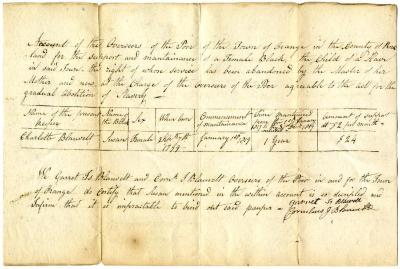 Account of the Overseers of the Poor of the Town of Orange in the County of Rock
land for the support and maintainance of a Female Black, the Child of a Slave
in said Town the right of whose service has been abandoned by the Master of her
Mother and now at the Charge of the overseers of the Poor agreeable to the act for the
gradual abolition of Slavery —
Name of the present keeper
Name of the Child
Sex
When born
Commencement of maintainance
Time maintained from the 1st January
amount of support at $2 per month
Charlotte Blauvelt
Susan
Female
1799
January 1st
1 Year
$24
We Garret Js Blauvelt and Corns. J Blauvelt Overseers of the Poor in and for the Town
of Orange do Certify that Susan mentioned in the within account is so decripled and
Infirm that it is impracticable to bind out said pauper —
Garret Js Blauvelt
Cornelius J Blauvelt